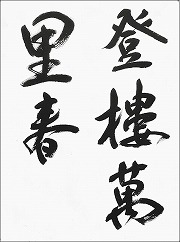 登樓萬
里春